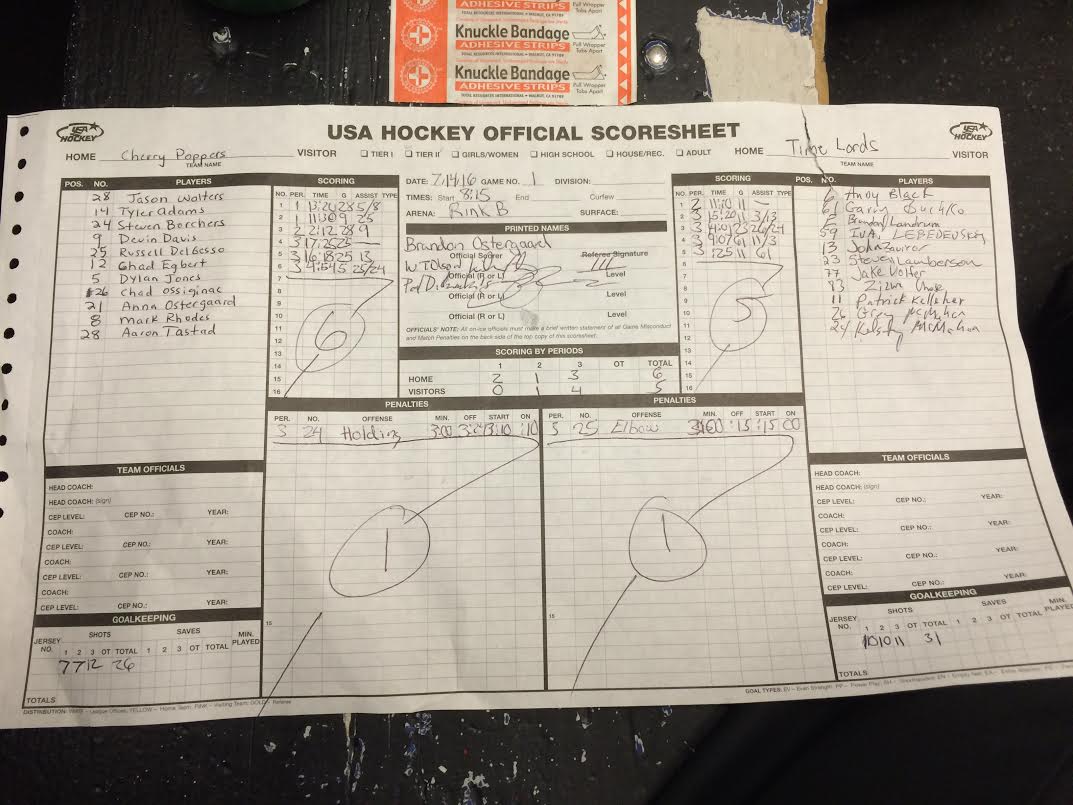 ADHESIVE STRIPS
TOTAL RESOURCES INTERNATIONAL • WALNUT, CA 91789
Knuckle Bandage
Pull Wrapper Tabs Apart
ADHESIVE STRIPS
TOTAL RESOURCES INTERNATIONAL • WALNUT, CA 91789
Knuckle Bandage
Pull Wrapper Tabs Apart
ADHESIVE STRIPS
TOTAL RESOURCES INTERNATIONAL • WALNUT, CA 91789
USA HOCKEY
USA HOCKEY OFFICIAL SCORESHEET
USA HOCKEY
HOME Cherry Poppers VISITOR
TEAM NAME
TIER I TIER II GIRLS/WOMEN HIGH SCHOOL HOUSE/REC. ADULT
HOME Time Lords VISITOR
TEAM NAME
POS. NO. PLAYERS
28 Jason Walters
14 Tyler Adams
24 Steven Borchers
9 Devin Davis
25 Russell DelBosso
12 Chad Egbert
5 Dylan Jones
26 Chad Ossiginac
21 Anna Ostergaard
8 Mark Rhodes
28 Aaron Tastad
SCORING
NO. PER. TIME G ASSIST TYPE
1 1 13:20 28 5/8
2 1 11:30 9 25
3 2 2:12 28 9
4 3 17:25 25 —
5 3 16:18 25 13
6 3 4:54 5 25/24
7
8
9
10
11
12
13
14
15
16
6
DATE: 7/14/16 GAME NO. 1 DIVISION:
TIMES: Start 8:15 End Curfew
ARENA: Rink B SURFACE:
PRINTED NAMES
Brandon Ostergaard
Official Scorer Referee Signature
Official (R or L) Level
Official (R or L) Level
Official (R or L) Level
OFFICIALS' NOTE: All on-ice officials must make a brief written statement of all Game Misconduct
and Match Penalties on the back side of the top copy of this scoresheet.
SCORING BY PERIODS
1 2 3 OT TOTAL
HOME 2 1 3 6
VISITORS 0 1 4 5
SCORING
NO. PER. TIME G ASSIST TYPE
1 2 11:10 11 —
2 3 15:20 11 3/13
3 3
4 3 9:07 61 11/3
5 3 :25 11 61
6
7
8
9
10
11
12
13
14
15
16
5
POS. NO. PLAYERS
Andy Black
61
Brandon Landrum
59 IVA. LEBEDEVSKY
13 John
23 Steven Lamberson
77 Jake Volfer
83
11 Patrick Kelleher
26 Greg McMahon
24 Kelsey McMahon
PENALTIES
PER. NO. OFFENSE MIN. OFF START ON
3 24 Holding 3:00 3:10 :10
1
15
PENALTIES
PER. NO. OFFENSE MIN. OFF START ON
3 25 Elbow :15 :15 00
1
15
TEAM OFFICIALS
HEAD COACH:
HEAD COACH: (sign)
CEP LEVEL: CEP NO.: YEAR:
COACH:
CEP LEVEL: CEP NO.: YEAR:
COACH:
CEP LEVEL: CEP NO.: YEAR:
COACH:
CEP LEVEL: CEP NO.: YEAR:
GOALKEEPING
JERSEY NO. SHOTS SAVES MIN. PLAYED
1 2 3 OT TOTAL 1 2 3 OT TOTAL
7 7 12 26
TOTALS
TEAM OFFICIALS
HEAD COACH:
HEAD COACH: (sign)
CEP LEVEL: CEP NO.: YEAR:
COACH:
CEP LEVEL: CEP NO.: YEAR:
COACH:
CEP LEVEL: CEP NO.: YEAR:
COACH:
CEP LEVEL: CEP NO.: YEAR:
GOALKEEPING
JERSEY NO. SHOTS SAVES MIN. PLAYED
1 2 3 OT TOTAL 1 2 3 OT TOTAL
10 10 11 31
TOTALS
DISTRIBUTION: WHITE – League Offices; YELLOW – Home Team; PINK – Visiting Team; GOLD – Referee
GOAL TYPES: EV – Even Strength; PP – Power Play; SH – Shorthanded; EN – Empty Net;